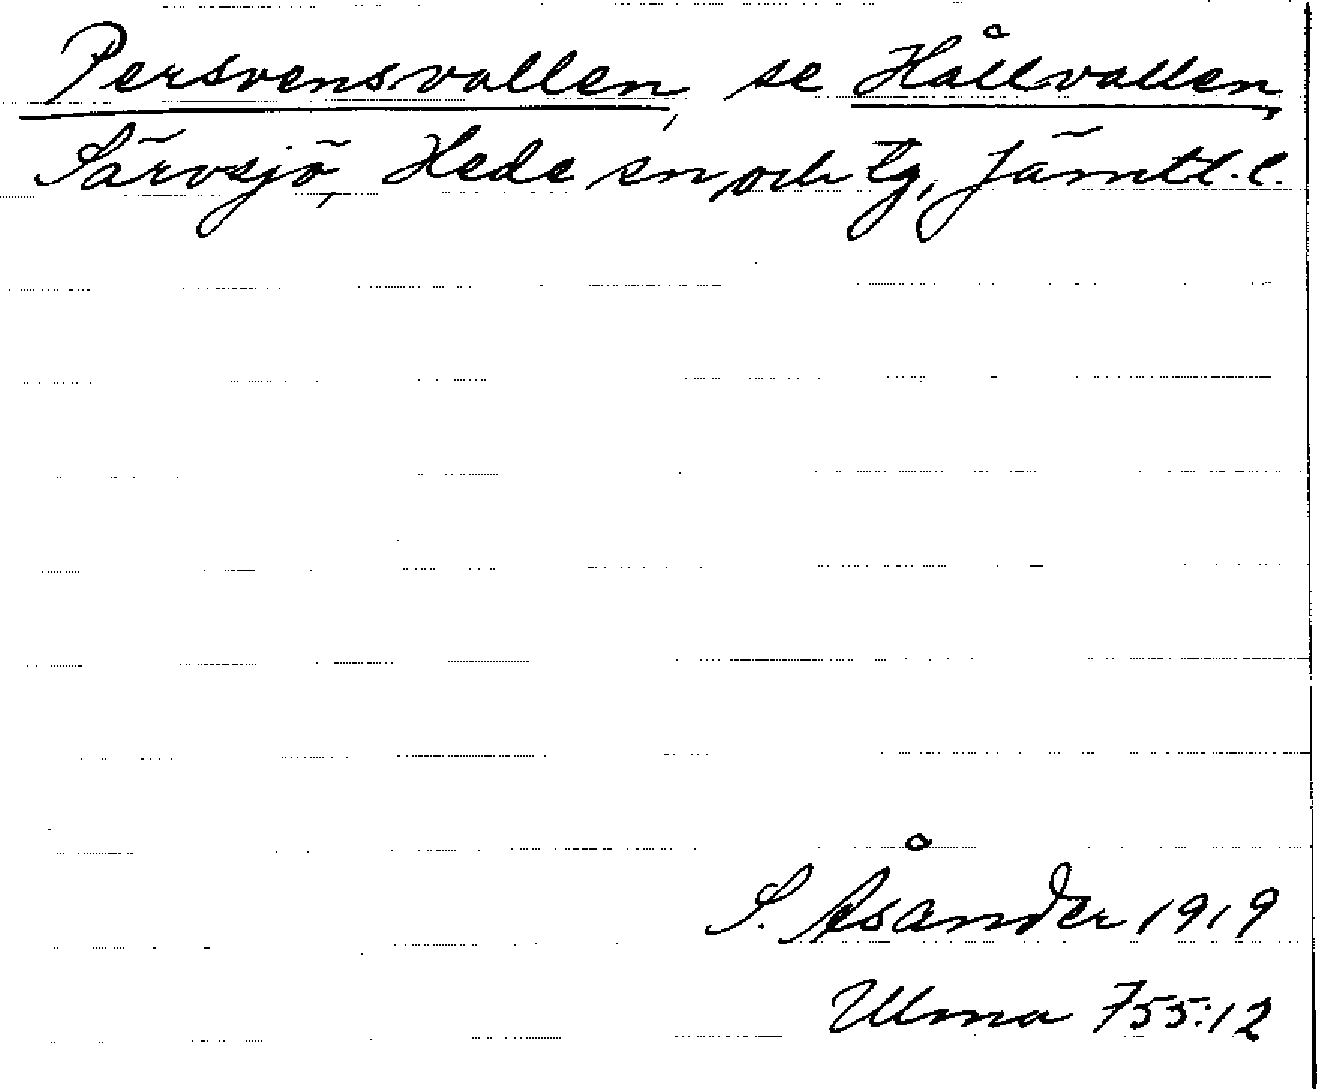 Persvensvallen, se Hållvallen,
Särvsjö, Hede sn och tg, Jämtl. l.
S. Åsånder 1919
Ulma 755:12